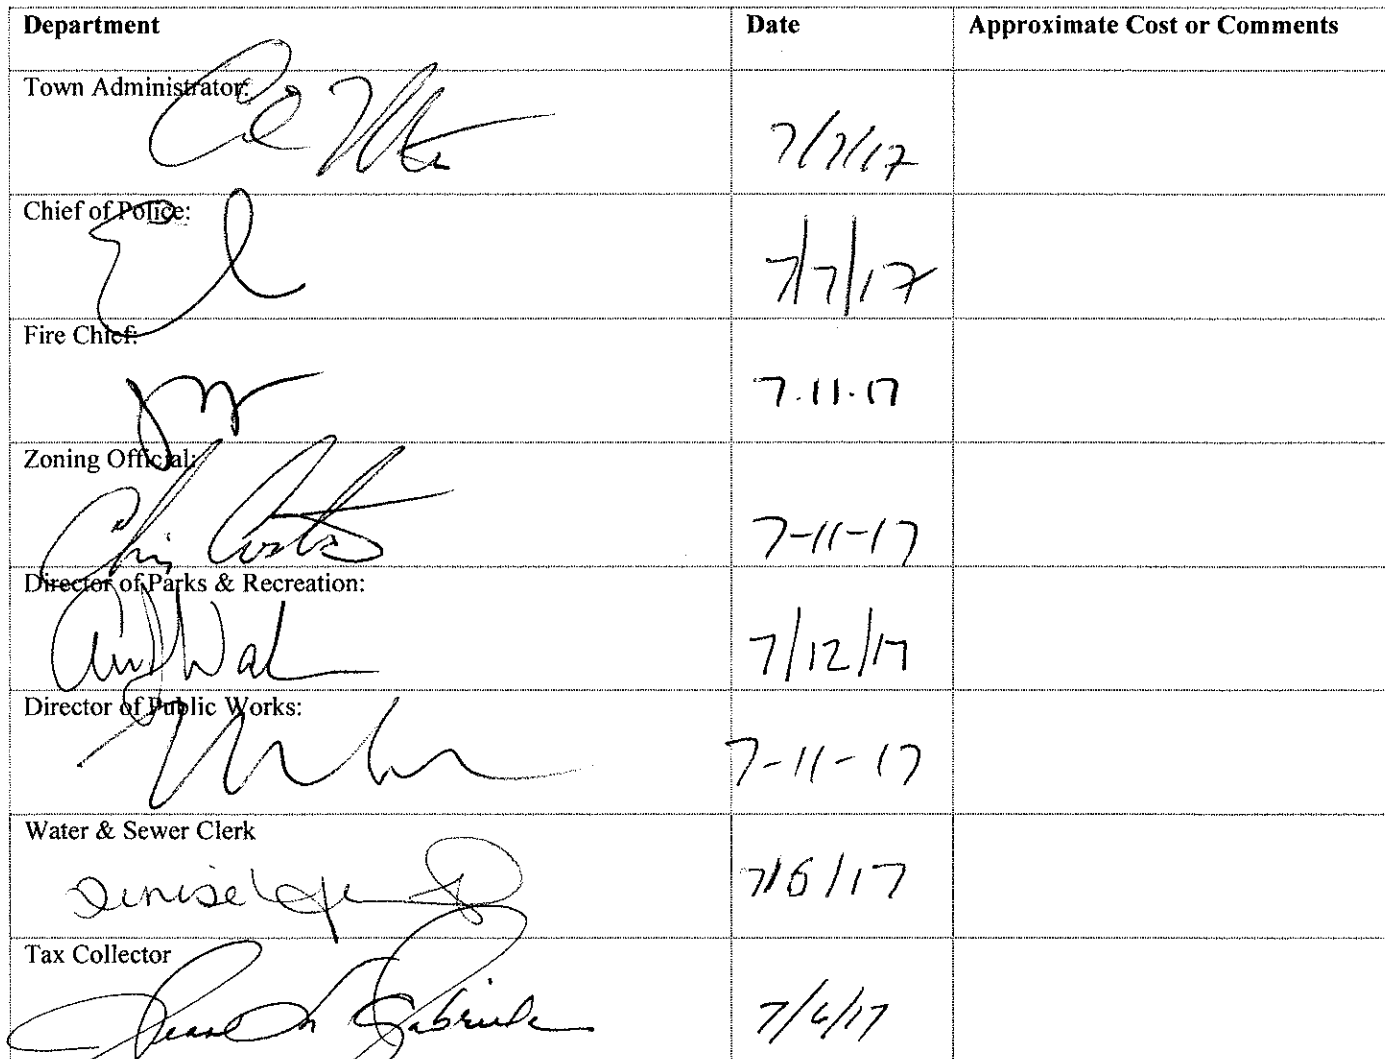 Department Date Approximate Cost or Comments
Town Administrator:
7/7/17
Chief of Police:
7/7/17
Fire Chief:
7.11.17
Zoning Official:
Chris
7-11-17
Director of Parks & Recreation:
7/12/17
Director of Public Works:
7-11-17
Water & Sewer Clerk
Denise
7/6/17
Tax Collector
7/6/17